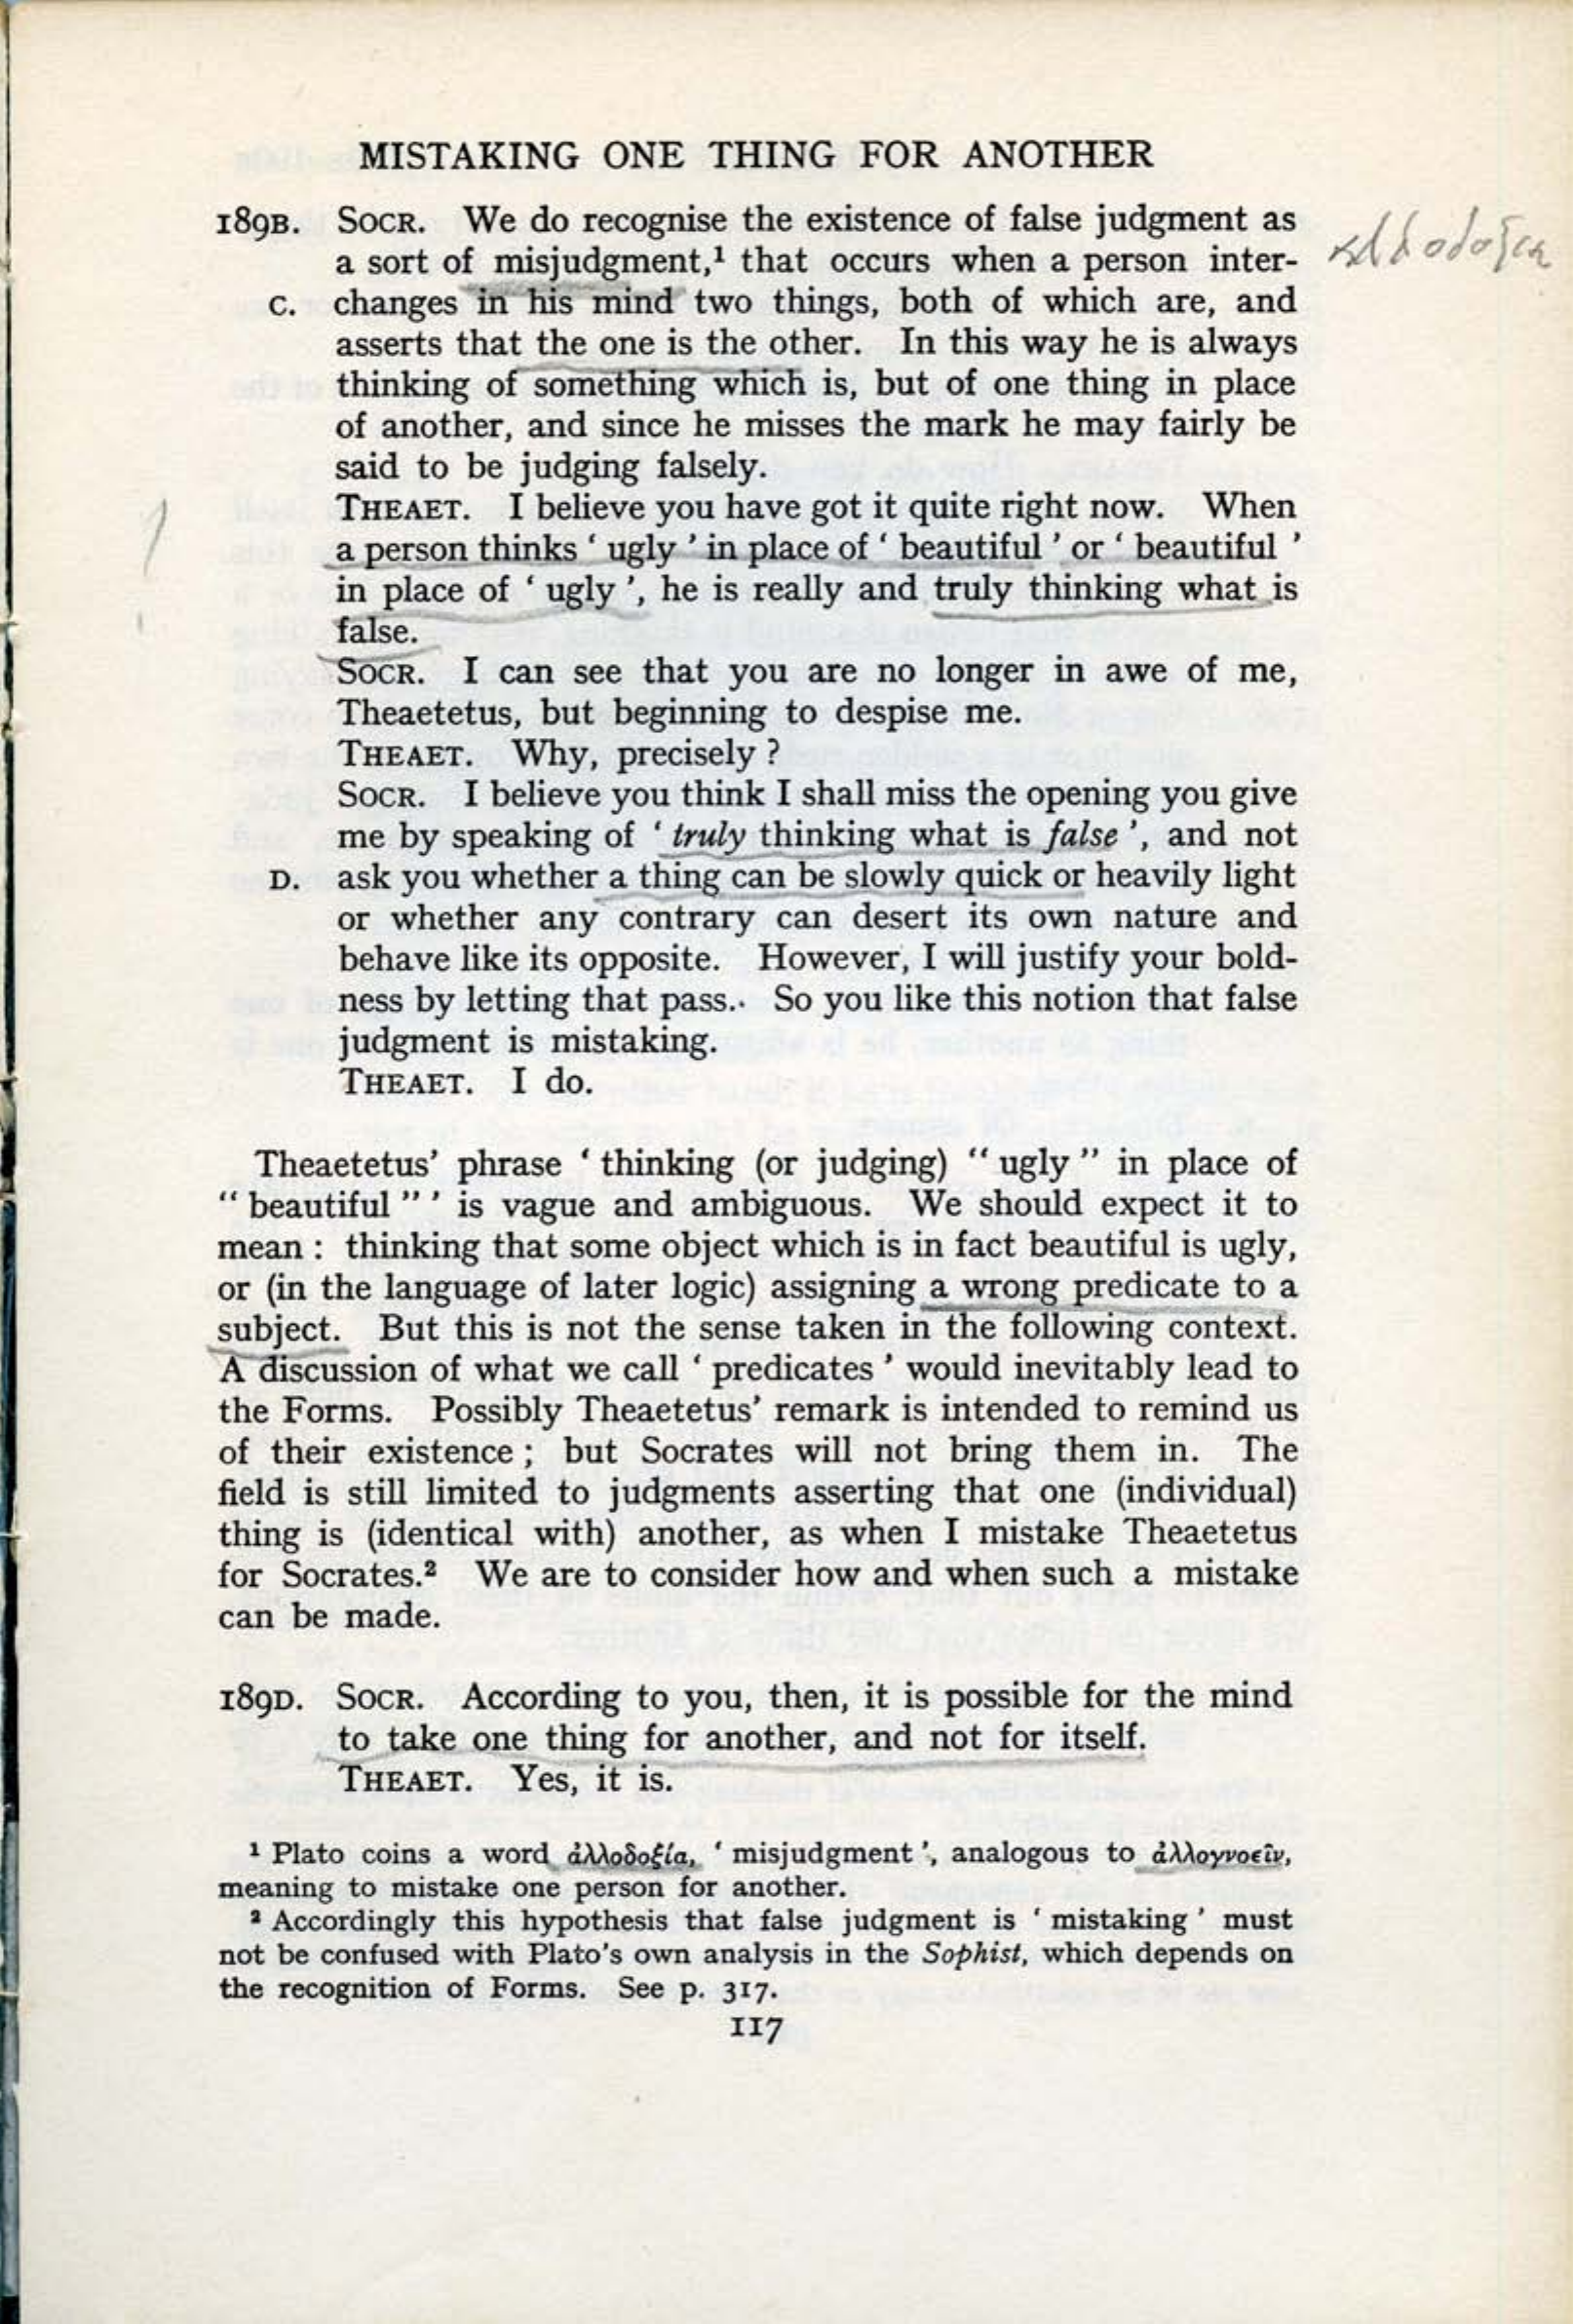 MISTAKING ONE THING FOR ANOTHER
189B. SOCR. We do recognise the existence of false judgment as
a sort of misjudgment,¹ that occurs when a person inter-
αλλοδοξια
C. changes in his mind two things, both of which are, and
asserts that the one is the other. In this way he is always
thinking of something which is, but of one thing in place
of another, and since he misses the mark he may fairly be
said to be judging falsely.
THEAET. I believe you have got it quite right now. When
a person thinks ‘ ugly ’ in place of ‘ beautiful ’ or ‘ beautiful ’
in place of ‘ ugly ’, he is really and truly thinking what is
false.
SOCR. I can see that you are no longer in awe of me,
Theaetetus, but beginning to despise me.
THEAET. Why, precisely ?
SOCR. I believe you think I shall miss the opening you give
me by speaking of ‘ truly thinking what is false ’, and not
D. ask you whether a thing can be slowly quick or heavily light
or whether any contrary can desert its own nature and
behave like its opposite. However, I will justify your bold-
ness by letting that pass.. So you like this notion that false
judgment is mistaking.
THEAET. I do.
Theaetetus’ phrase ‘ thinking (or judging) “ ugly ” in place of
“ beautiful ” ’ is vague and ambiguous. We should expect it to
mean : thinking that some object which is in fact beautiful is ugly,
or (in the language of later logic) assigning a wrong predicate to a
subject. But this is not the sense taken in the following context.
A discussion of what we call ‘ predicates ’ would inevitably lead to
the Forms. Possibly Theaetetus’ remark is intended to remind us
of their existence ; but Socrates will not bring them in. The
field is still limited to judgments asserting that one (individual)
thing is (identical with) another, as when I mistake Theaetetus
for Socrates.² We are to consider how and when such a mistake
can be made.
189D. SOCR. According to you, then, it is possible for the mind
to take one thing for another, and not for itself.
THEAET. Yes, it is.
¹ Plato coins a word ἀλλοδοξία, ‘ misjudgment ’, analogous to ἀλλογνοεῖν,
meaning to mistake one person for another.
² Accordingly this hypothesis that false judgment is ‘ mistaking ’ must
not be confused with Plato’s own analysis in the Sophist, which depends on
the recognition of Forms. See p. 317.
117